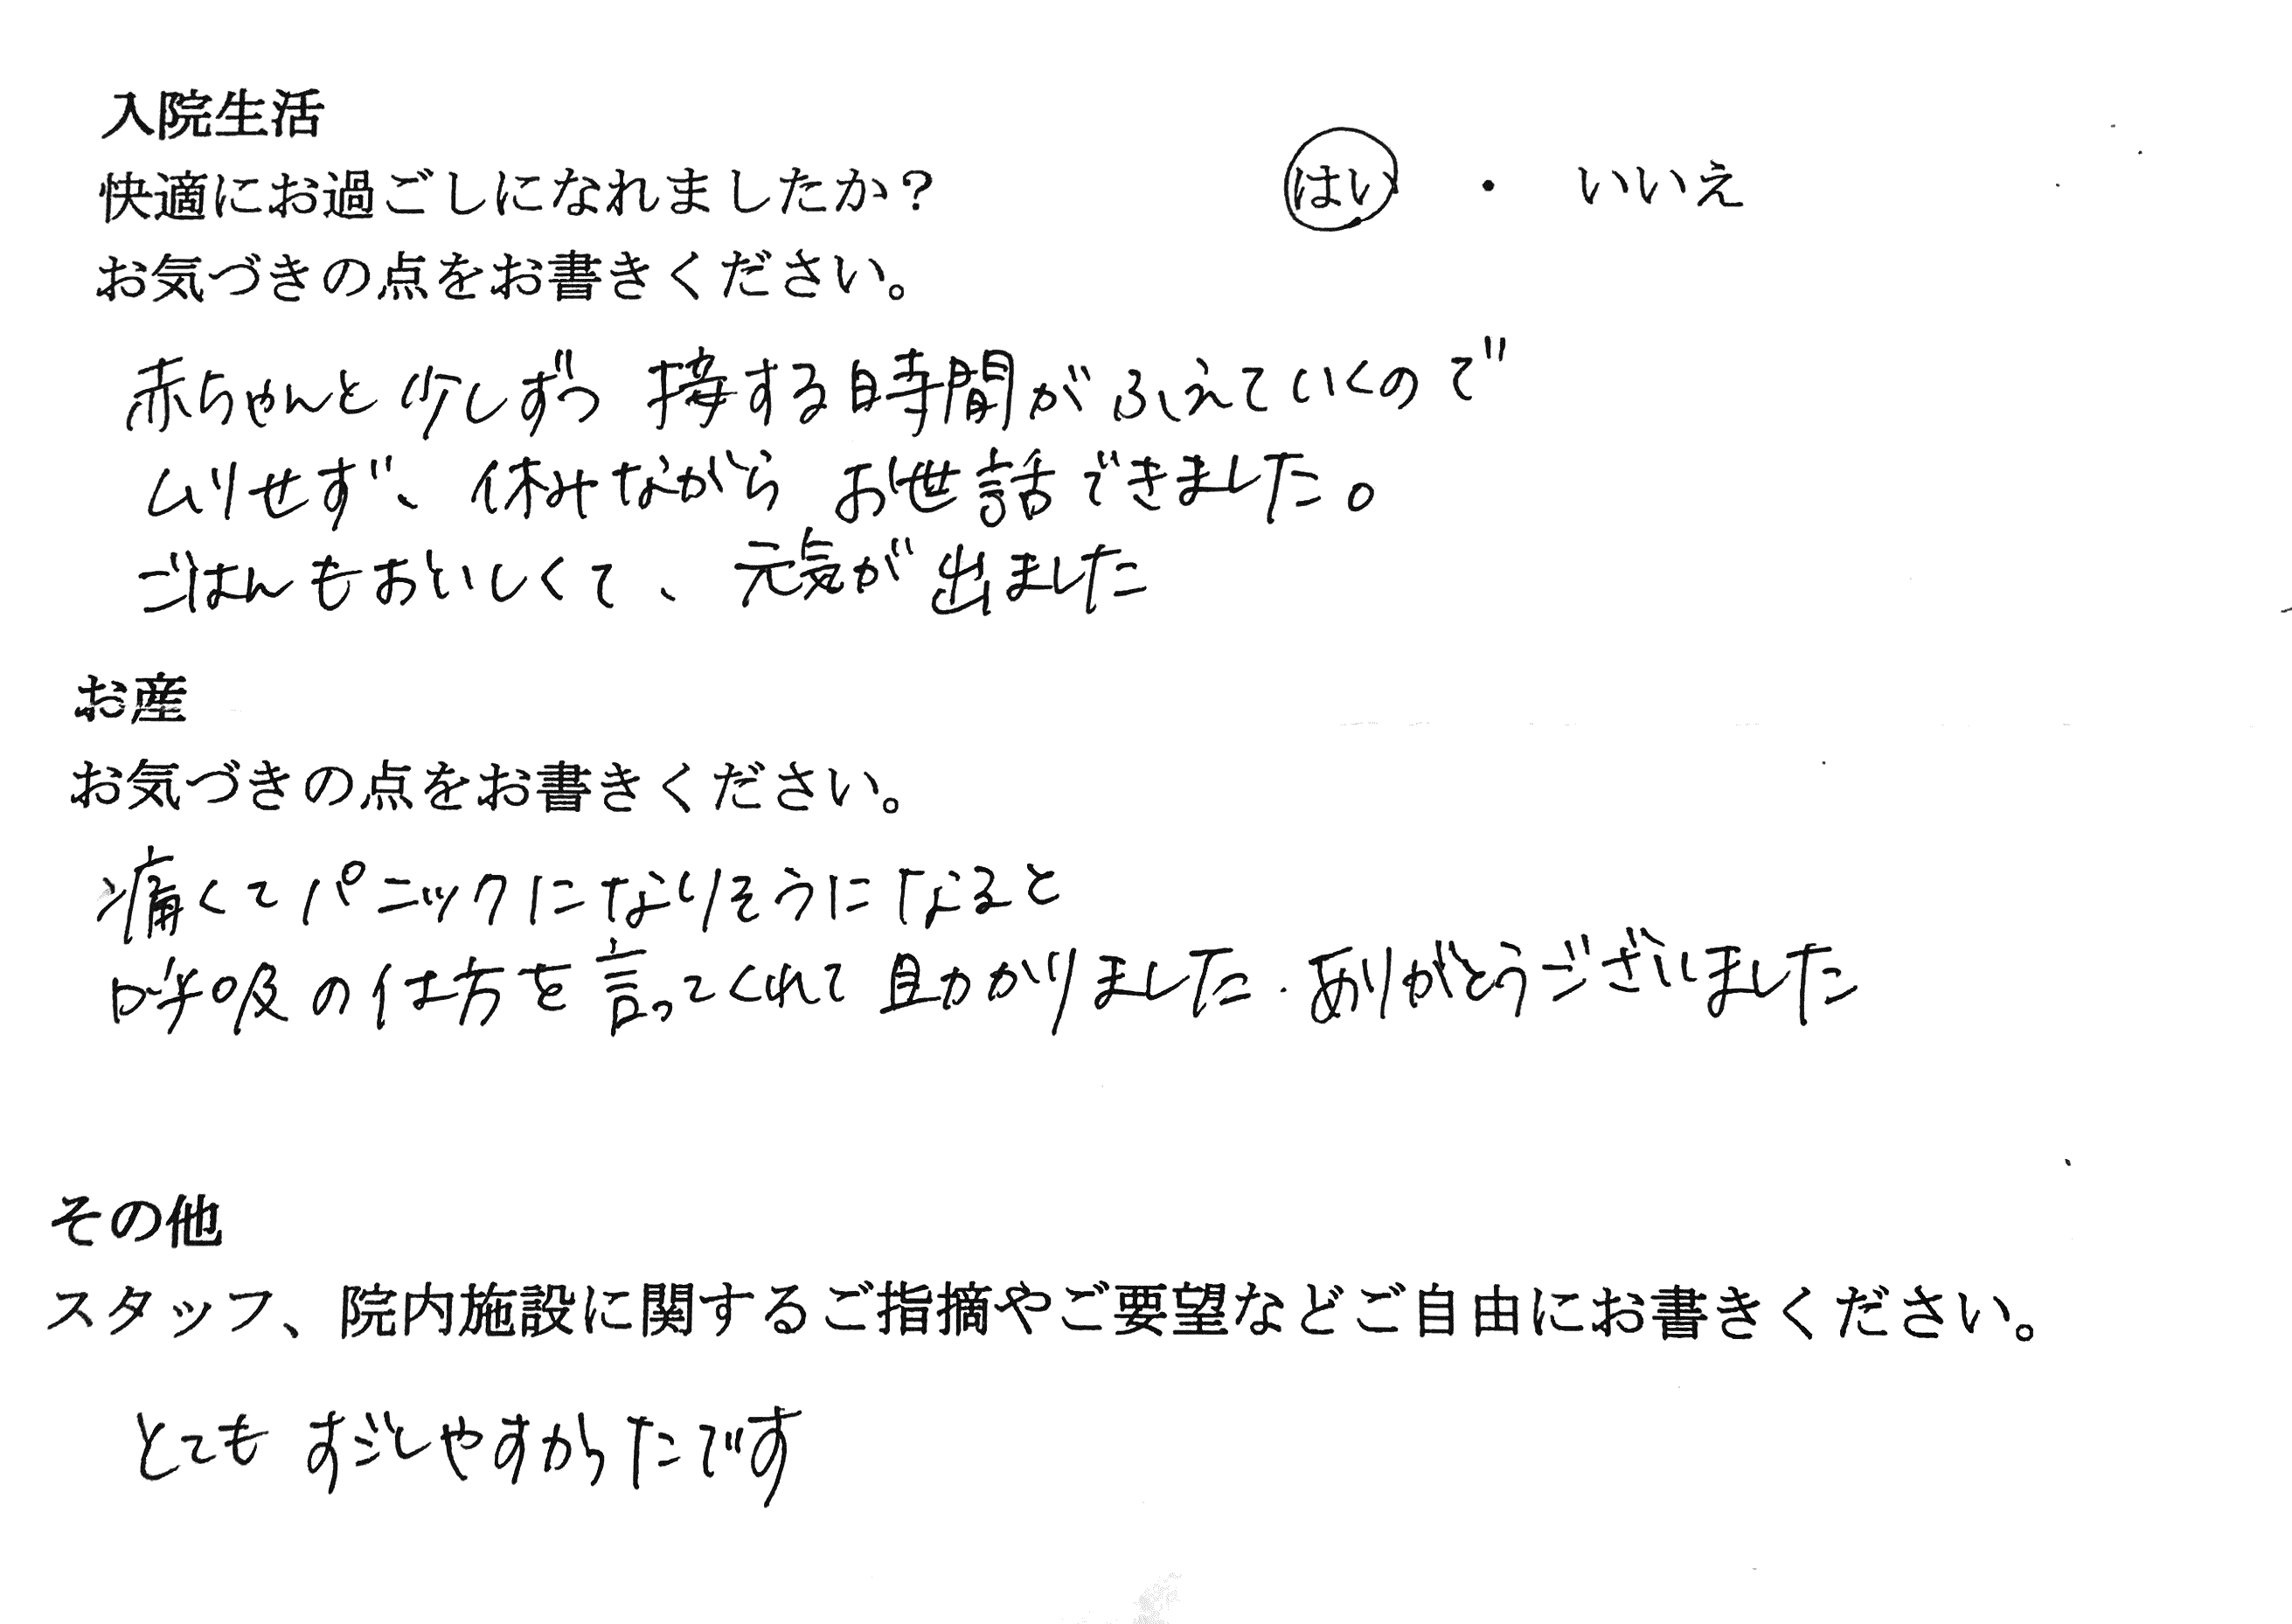 入院生活
快適にお過ごしになれましたか？ はい ・ いいえ
お気づきの点をお書きください。
赤ちゃんと少しずつ 接する時間がふえていくので
ムリせず、休みながら お世話できました。
ごはんもおいしくて、元気が出ました
お産
お気づきの点をお書きください。
痛くてパニックになりそうになると
呼吸の仕方を言ってくれて助かりました.ありがとうございました
その他
スタッフ、院内施設に関するご指摘やご要望などご自由にお書きください。
とても すごしやすかったです